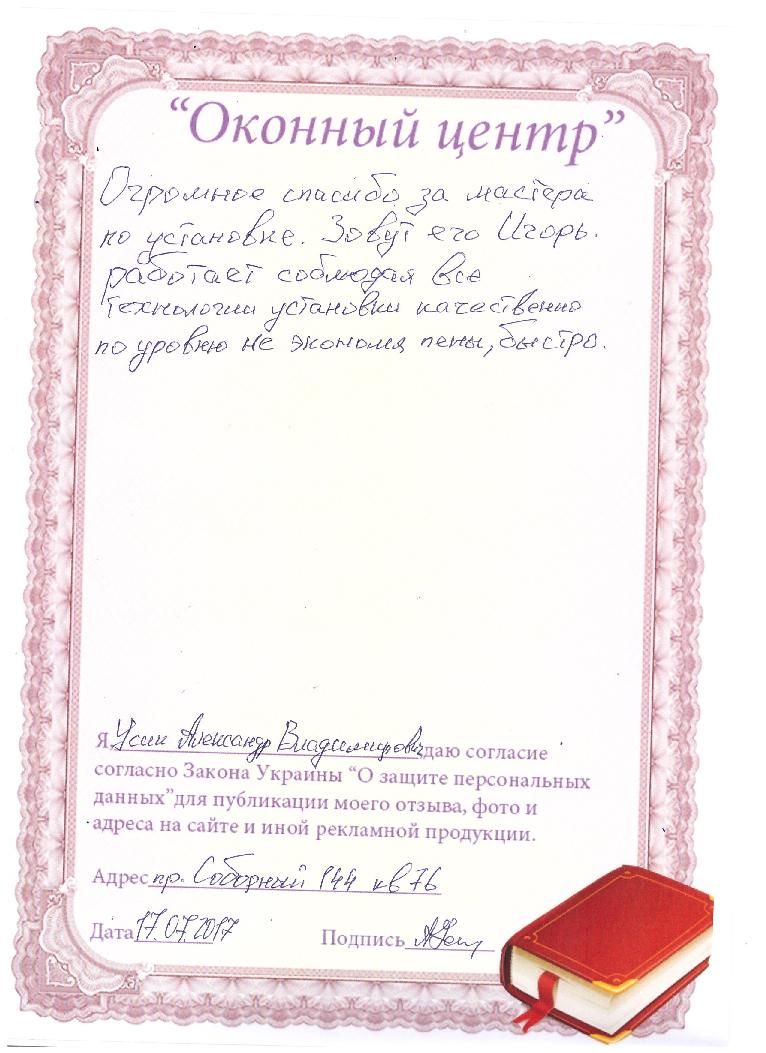 “Оконный центр”
Огромное спасибо за мастера
по установке. Зовут его Игорь.
работает соблюдая все
технологии установки качественно
по уровню не экономя пены, быстро.
Я Усик Александр Владимирович даю согласие
согласно Закона Украины “О защите персональных
данных”для публикации моего отзыва, фото и
адреса на сайте и иной рекламной продукции.
Адрес пр. Соборный 144 кв 76
Дата 17.07.2017 Подпись